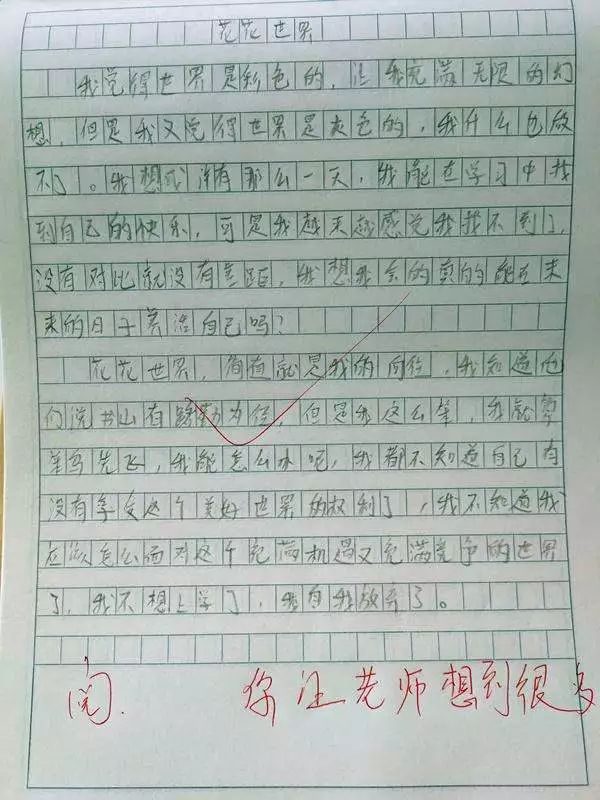 花花世界
我觉得世界是彩色的，让我充满无限的幻
想，但是我又觉得世界是灰色的，我什么也做
不了。我想或许有那么一天，我能在学习中找
到自己的快乐，可是我越来越感觉我找不到了，
没有对比就没有差距，我想我会的真的能在未
来的日子养活自己吗？
花花世界，简直就是我的向往，我知道他
们说书山有路勤为径，但是我这么笨，我就算
笨鸟先飞，我能怎么办吧，我都不知道自己有
没有享受这个美好世界的权利了，我不知道我
应该怎么面对这个充满机遇又充满竞争的世界
了，我不想上学了，我自我放弃了。
阅. 你让老师想到很多